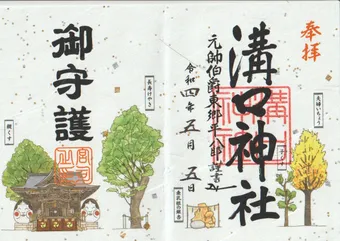 奉拝
溝口神社
元帥伯爵東郷平八郎謹書
令和四年五月五日
夫婦いちょう
御守護
長寿けやき
親くす